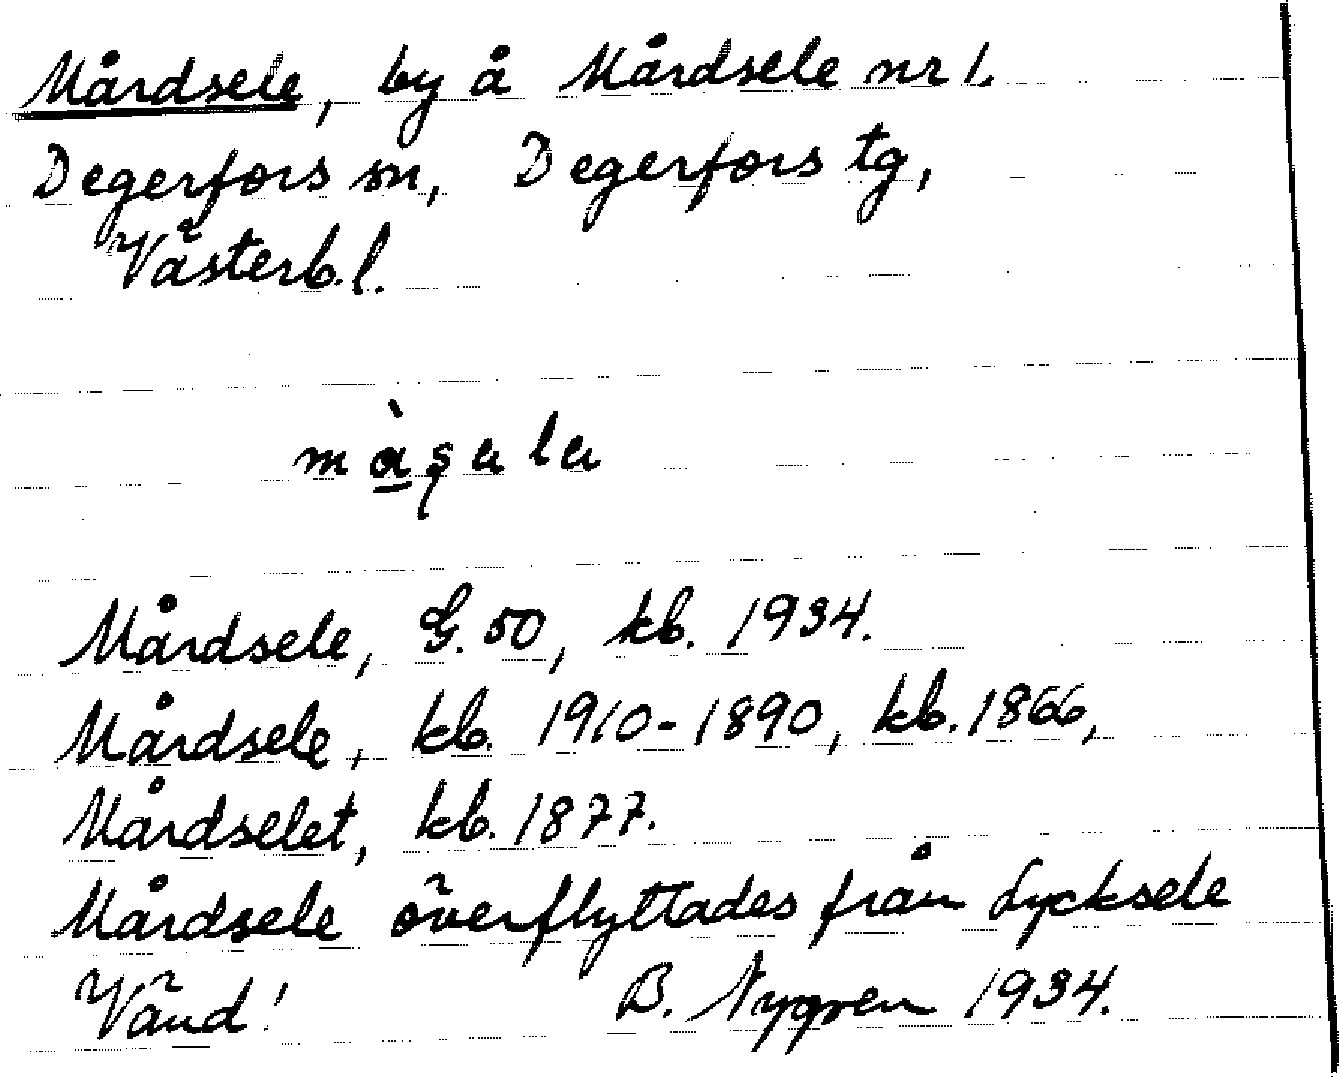 Mårdsele, by å Mårdsele nr 1.
Degerfors sn, Degerfors tg,
Västerb.l.
Mårdsele, G. 50, kb. 1934.
Mårdsele, kb. 1910-1890, kb. 1866,
Mårdselet, kb. 1877.
Mårdsele överflyttades från Lycksele
Vänd! B. Nygren 1934.